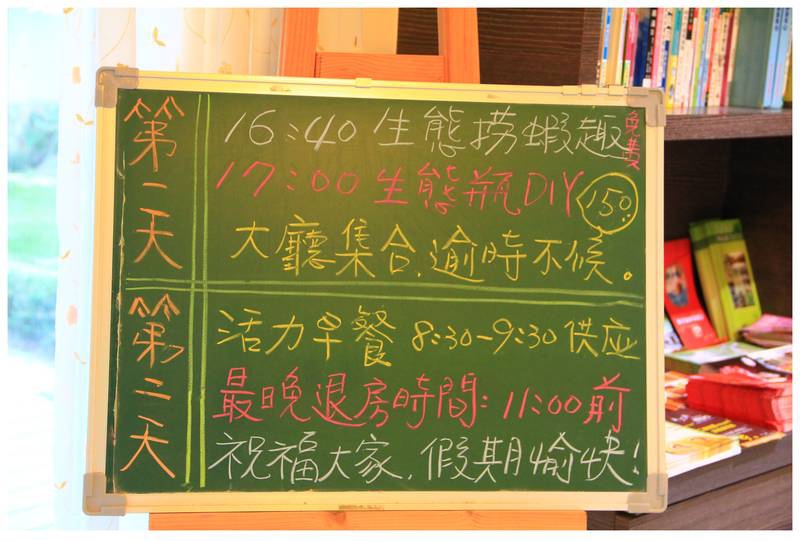 第一天
16:40 生態撈蝦趣 免費
17:00 生態瓶DIY 150
大廳集合,逾時不候。
第二天
活力早餐 8:30-9:30 供应
最晚退房時間:11:00前
祝福大家,假期愉快!